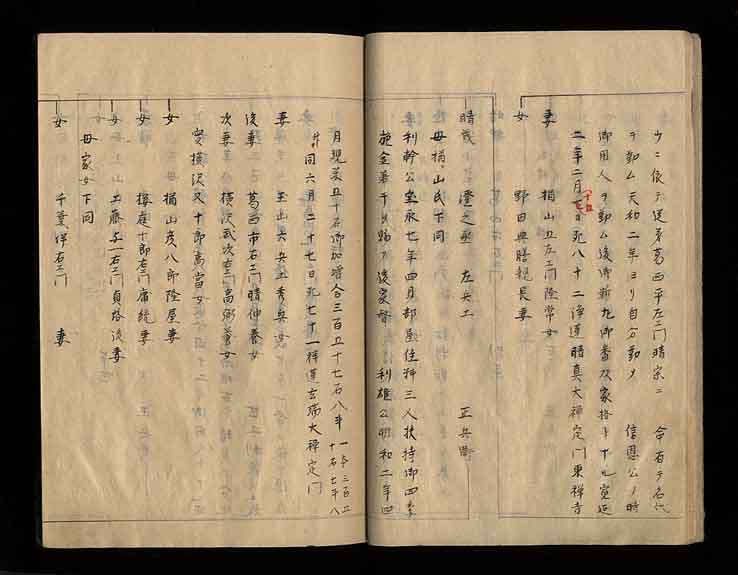 少ニ依テ従弟葛西平左エ門晴宗ニ 命有テ名代
ヲ勤ム天和二年ヨリ自分勤メ 信恩公ノ時
御用人ヲ勤ム後御新丸御番頭家格
二年二月七日死八十二浄道晴真大禅定門東禅寺
妻 楢山五左エ門隆常女
女 野田典膳親長妻
晴 澄之丞 左兵エ 正兵衛
母楢山氏下同
利幹公 七年四月部屋住料三人扶持御四季
施金若干ヲ賜フ後家督 利雄公明和二年四
月現米五十石御加増合三百五十七石八斗
同六月二十七日死七十一祥道玄瑞大禅定門
妻 玉山六兵エ秀典女
後妻 葛西市右エ門晴仲養女
次妻 横沢武次右エ門高弼養女
実横沢又十郎高富女
女 楢山彦八郎隆屋妻
女 桜庭十郎右エ門庸統妻
女 工藤与一右エ門貞 後妻
母家女下同
女 千葉伴右エ門 妻